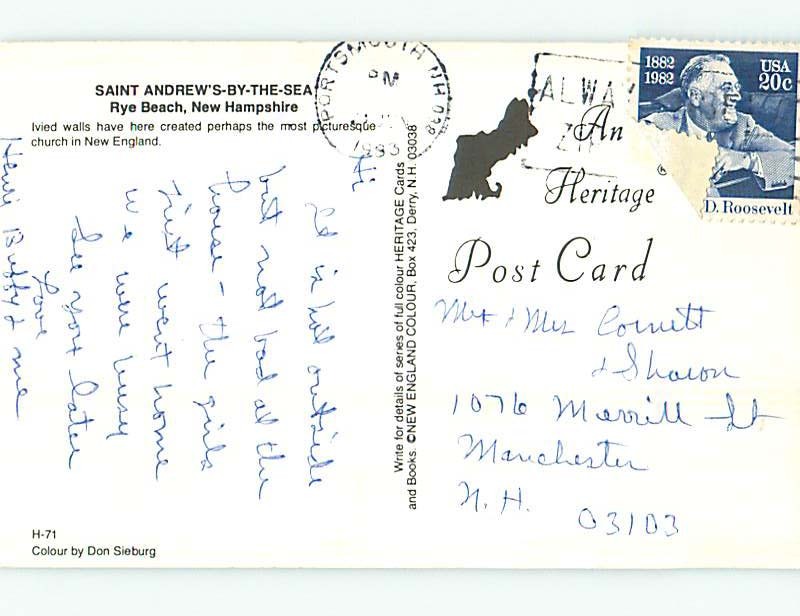 SAINT ANDREW'S-BY-THE-SEA
Rye Beach, New Hampshire
Ivied walls have here created perhaps the most picturesque
church in New England.
Hi
It is hot outside
but not bad at the
house - the girls
just went home
we were busy
See you later
Love
Henri Buffy & me
H-71
Colour by Don Sieburg
Write for details of series of full colour HERITAGE Cards
and Books. ©NEW ENGLAND COLOUR, Box 423, Derry, N.H. 03038
PORTSMOUTH NH 038
PM
1983
ALWA
ZI
1882
1982
USA
20c
D. Roosevelt
An
Heritage
Post Card
Mr + Mrs Cornett
& Sharon
1076 Merrill St
Manchester
N.H.
03103